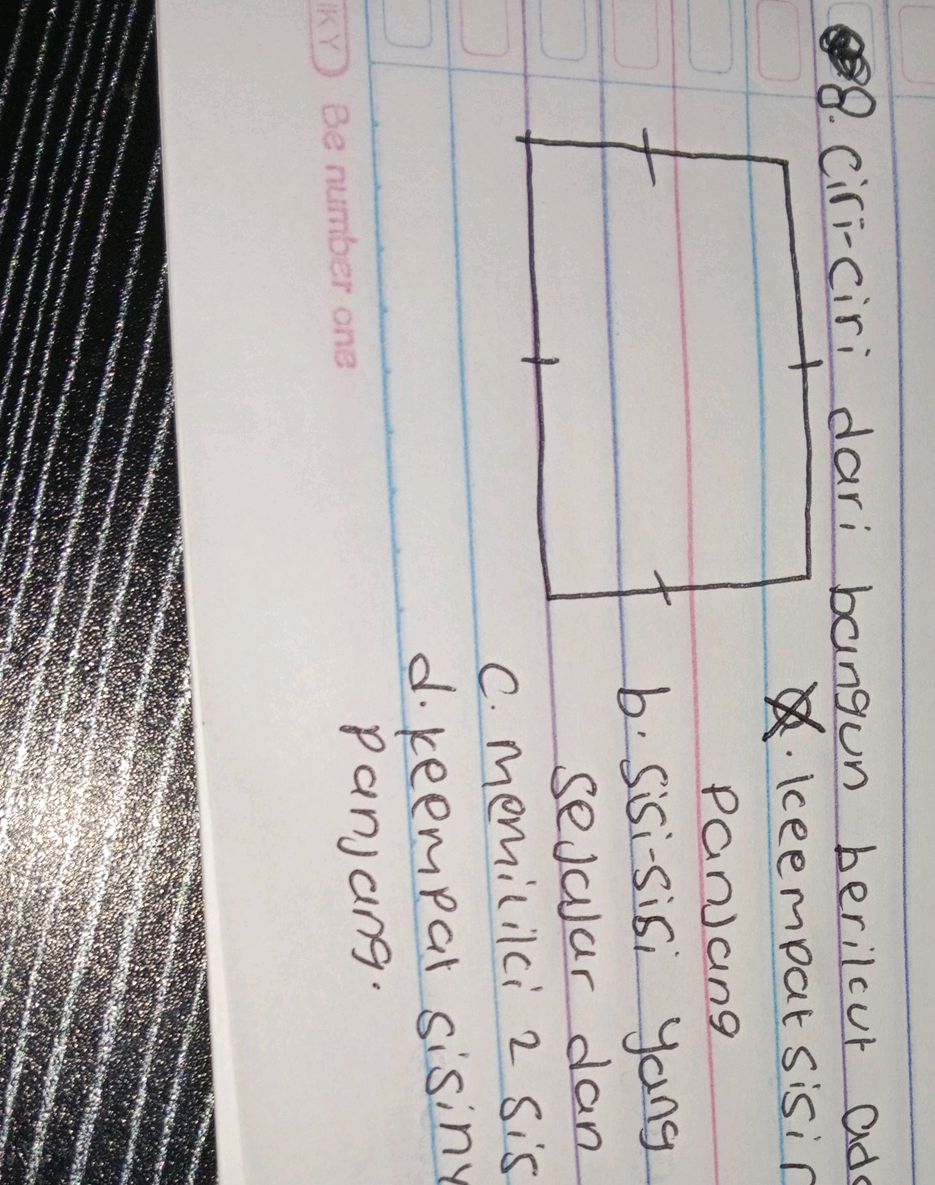 8. Ciri-ciri dari bangun berikut
a. keempat
panjang
b. sisi-sisi yang
sejajar dan
c. memiliki 2
d. keempat
panjang.
KY Be number one